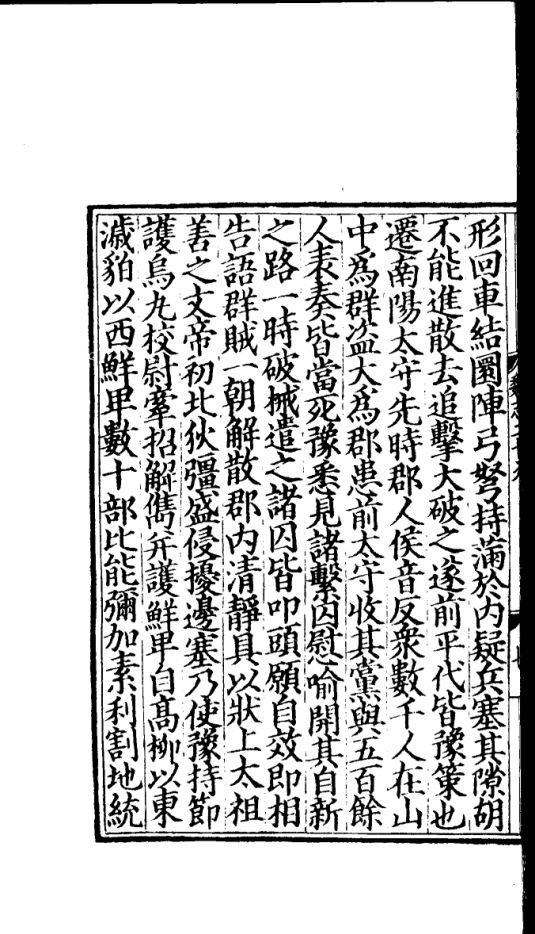 形回車結圜陣弓弩持滿於內疑兵塞其隙胡
不能進散去追擊大破之遂前平代皆豫策也
遷南陽太守先時郡人侯音反衆數千人在山
中爲群盜大爲郡患前太守收其黨與五百餘
人表奏皆當死豫悉見諸繫囚慰喻開其自新
之路一時破械遣之諸囚皆叩頭願自效即相
告語群賊一朝解散郡內清靜具以狀上太祖
善之文帝初北狄彊盛侵擾邊塞乃使豫持節
護烏丸校尉牽招解儁并護鮮卑自高柳以東
濊貊以西鮮卑數十部比能彌加素利割地統